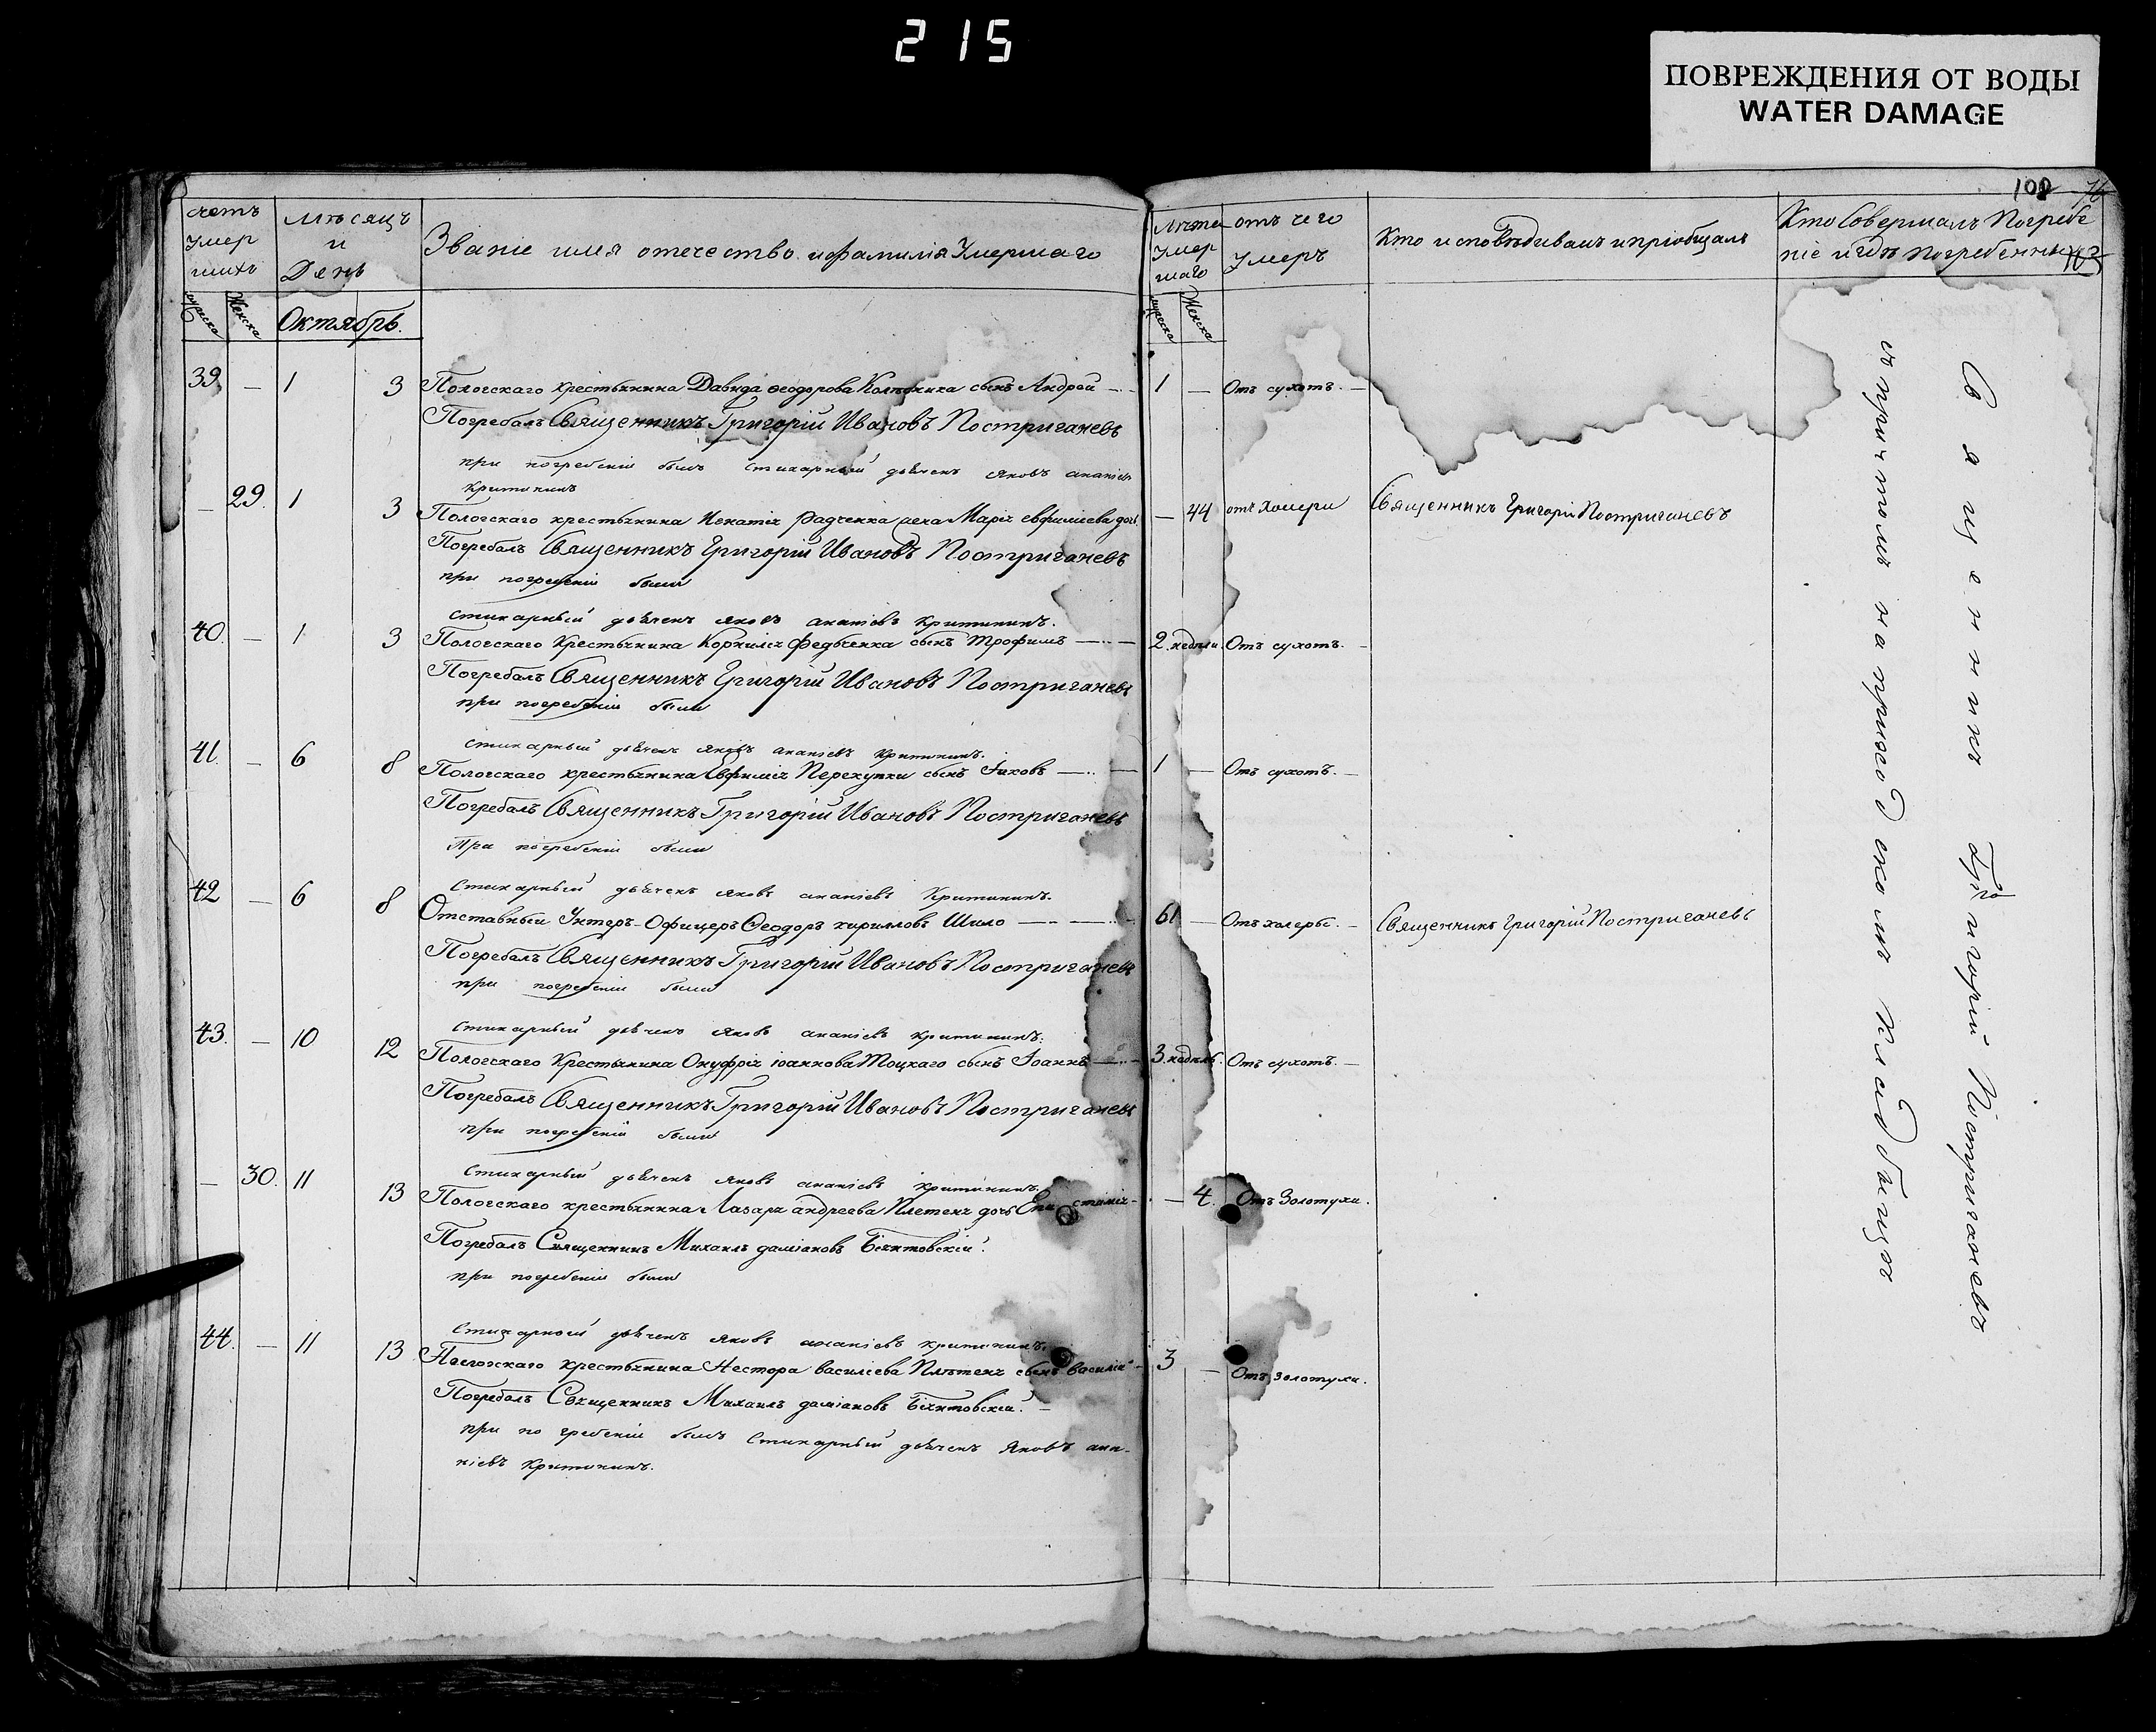 215
ПОВРЕЖДЕНИЯ ОТ ВОДЫ
WATER DAMAGE
108 76
счетъ умершихъ
мѣсяцъ и День
Званіе имя отечество и фамилія Умершаго
Лѣта Умершаго
отъ чего Умеръ
Кто исповѣдивалъ и пріобщалъ
Кто Совершалъ Погребеніе и гдѣ погребенны
103
мужска Женска
Октябрь.
мужска Женска
39 — 1 3 Пологскаго крестьянина Давида Ѳеодорова сынъ Андрей — 1 — Отъ сухотъ. —
Погребалъ Священникъ Григорій Ивановъ Постригачевъ
при погребеніи былъ Стихарный дьячекъ Яковъ Ананіевъ
Критининъ
— 29. 1 3 Пологскаго крестьянина Игнатія Радченка жена Марія Евфиміева доч. — 44 отъ Холери Священникъ Григорій Постригачевъ
Погребалъ Священникъ Григорій Ивановъ Постригачевъ
при погребеніи были
Стихарный дьячекъ Яковъ Ананіевъ Критининъ.
40. — 1 3 Пологскаго Крестьянина Корнилія Федьченка сынъ Трофимъ — 2. недели. Отъ сухотъ. —
Погребалъ Священникъ Григорій Ивановъ Постригачевъ
при погребеніи были
Стихарный дьячекъ Яковъ Ананіевъ Критининъ.
41. — 6 8 Пологскаго крестьянина Евфимія Перехупки сынъ Іаковъ — 1 — Отъ сухотъ. —
Погребалъ Священникъ Григорій Ивановъ Постригачевъ
При погребеніи были
Стихарный дьячекъ Яковъ Ананіевъ Критининъ.
42 — 6 8 Отставный Унтеръ-Офицеръ Ѳеодоръ Кирилловъ Шило — 61 — Отъ холеры. — Священникъ Григорій Постригачевъ
Погребалъ Священникъ Григорій Ивановъ Постригачевъ
при погребеніи были
Стихарный дьячекъ Яковъ Ананіевъ Критининъ.
43. — 10 12 Пологскаго Крестьянина Онуфрія Іоаннова Тоцкаго сынъ Іоаннъ — 3. недель. Отъ сухотъ. —
Погребалъ Священникъ Григорій Ивановъ Постригачевъ
при погребеніи были
Стихарный дьячекъ Яковъ Ананіевъ Критининъ.
— 30. 11 13 Пологскаго крестьянина Лазаря Андреева Плетеня дочь — 4. Отъ Золотухи.
Погребалъ Священникъ Михаилъ Даміановъ
при погребеніи были
Стихарной дьячекъ Яковъ Ананіевъ Критининъ.
44. — 11 13 Пологскаго крестьянина Нестора Василіева Плѣтеня сынъ Василій 3 — Отъ золотухи.
Погребалъ Священникъ Михаилъ Даміановъ
при погребеніи былъ Стихарный дьячекъ Яковъ Ана-
ніевъ Критининъ.
Священникъ Григорій Постригачевъ
съ причтомъ на приходскомъ кладбищѣ